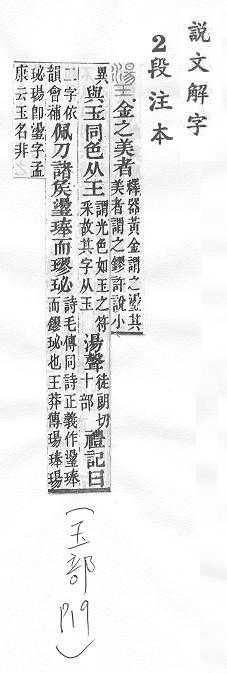 說文解字
2段注本
金之美者
釋器黃金謂之璗其
美者謂之鏐許說小
異
與玉同色从王
謂光色如玉之符
采故其字从玉
湯聲
徒朗切
十部
禮記曰
二字依
韻會補
佩刀諸矦璗琫而璆珌
詩毛傳同詩正義作璗琫
而鏐珌也王莽傳瑒琫瑒
珌瑒卽璗字孟
康云玉名非
(玉部 P19)